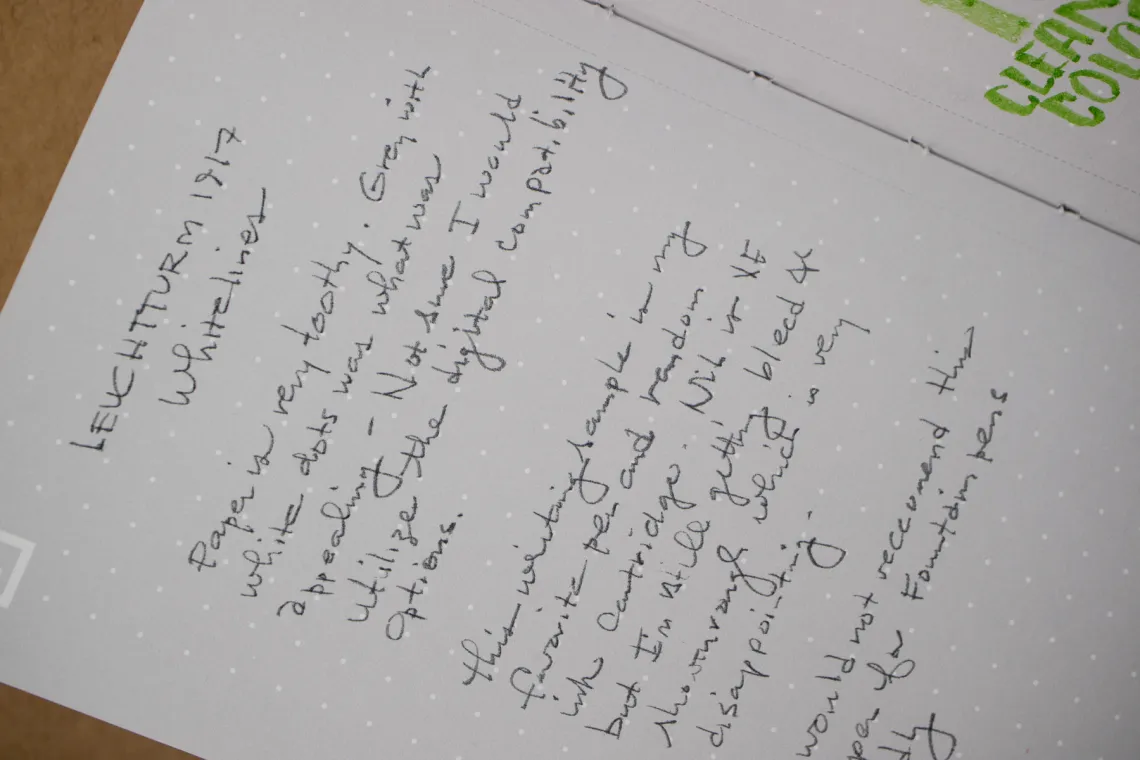 LEUCHTTURM 1917
Whitelines
Paper is very toothy. Grey with
white dots was what was
appealing - Not sure I would
utilize the digital compatibility
options.
This writing sample is my
favorite pen and random
ink cartridge. Nib is XF
but I'm still getting bleed &
show through which is very
disappointing.
would not reccomend this
for Fountain pens
CLEAN